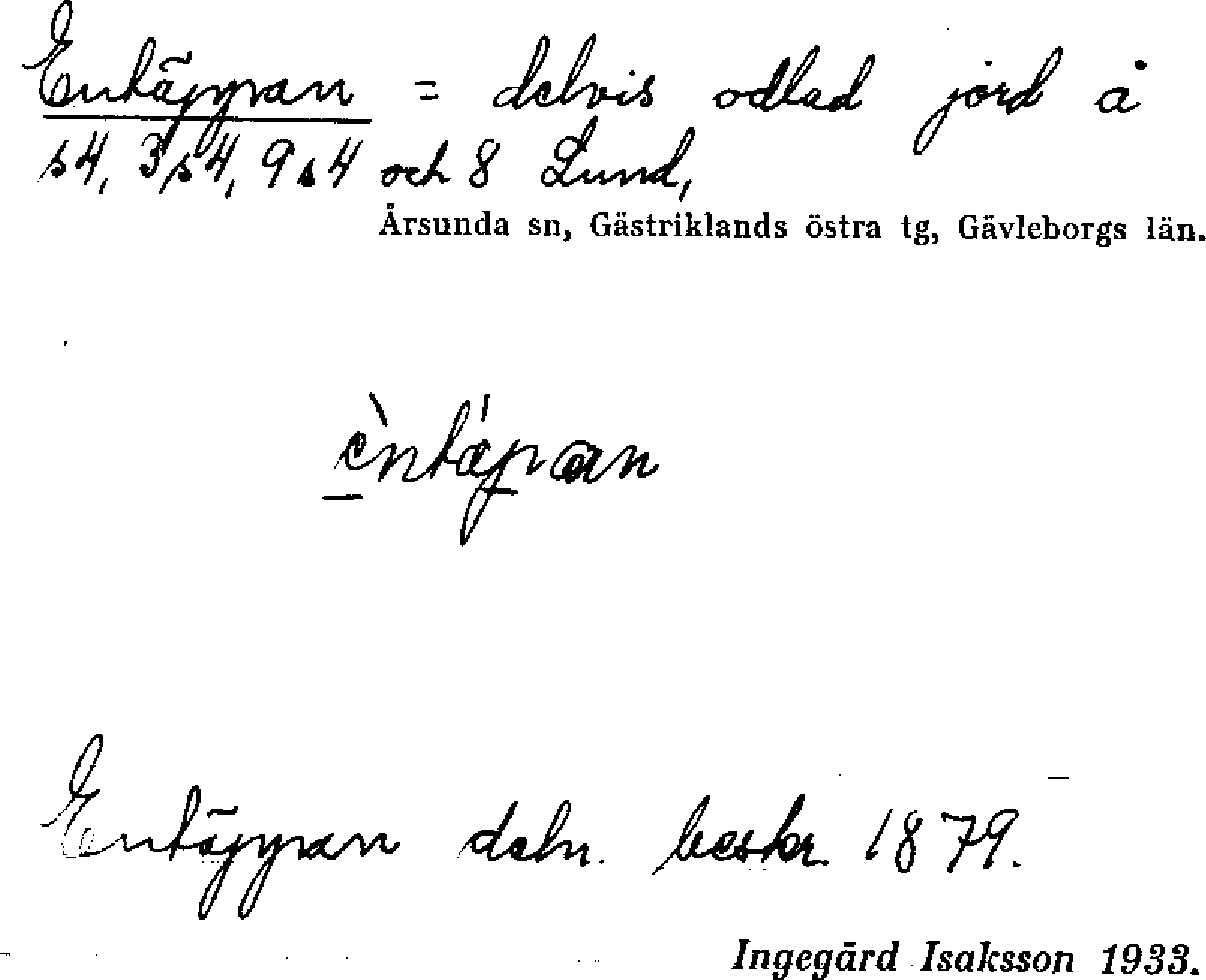 Entäppan = delvis odlad jord å
s4, 3s4, 9s4 och 8 Lund,
Årsunda sn, Gästriklands östra tg, Gävleborgs län.
Entäppan deln. beskr. 1879.
Ingegärd Isaksson 1933.